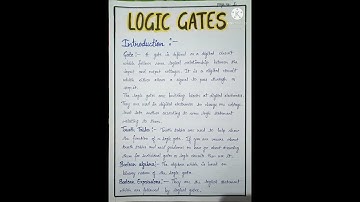 LOGIC GATES
Introduction :-
Gate :- A gate is defined as a digital circuit
which follows some logical relationship between the
input and output voltages. It is a digital circuit
which either allows a signal to pass through or
stop it.
The logic gates are building blocks of digital electronics.
They are used in digital electronics to change one voltage
level into another according to some logic statement
relating to them.
Truth Tables :- Truth tables are used to help show
the function of a logic gate. If you are unsure about
truth tables and need guidance on how go about drawing
them for individual gates or logic circuits then use it.
Boolean algebra :- The algebra which is based on
binary nature of the logic gates.
Boolean Expressions :- They are the logical statement
which are followed by logical gates.